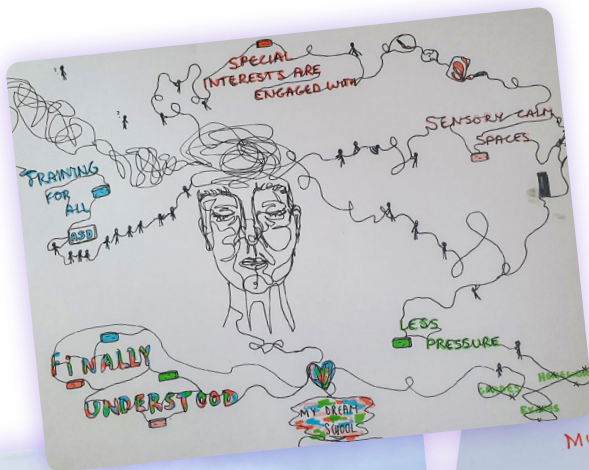 SPECIAL
INTERESTS ARE
ENGAGED WITH
SENSORY CALM
SPACES
TRAINING
FOR
ALL
ASD
LESS
PRESSURE
FINALLY
UNDERSTOOD
MY DREAM
SCHOOL
GRADES
EXAMS